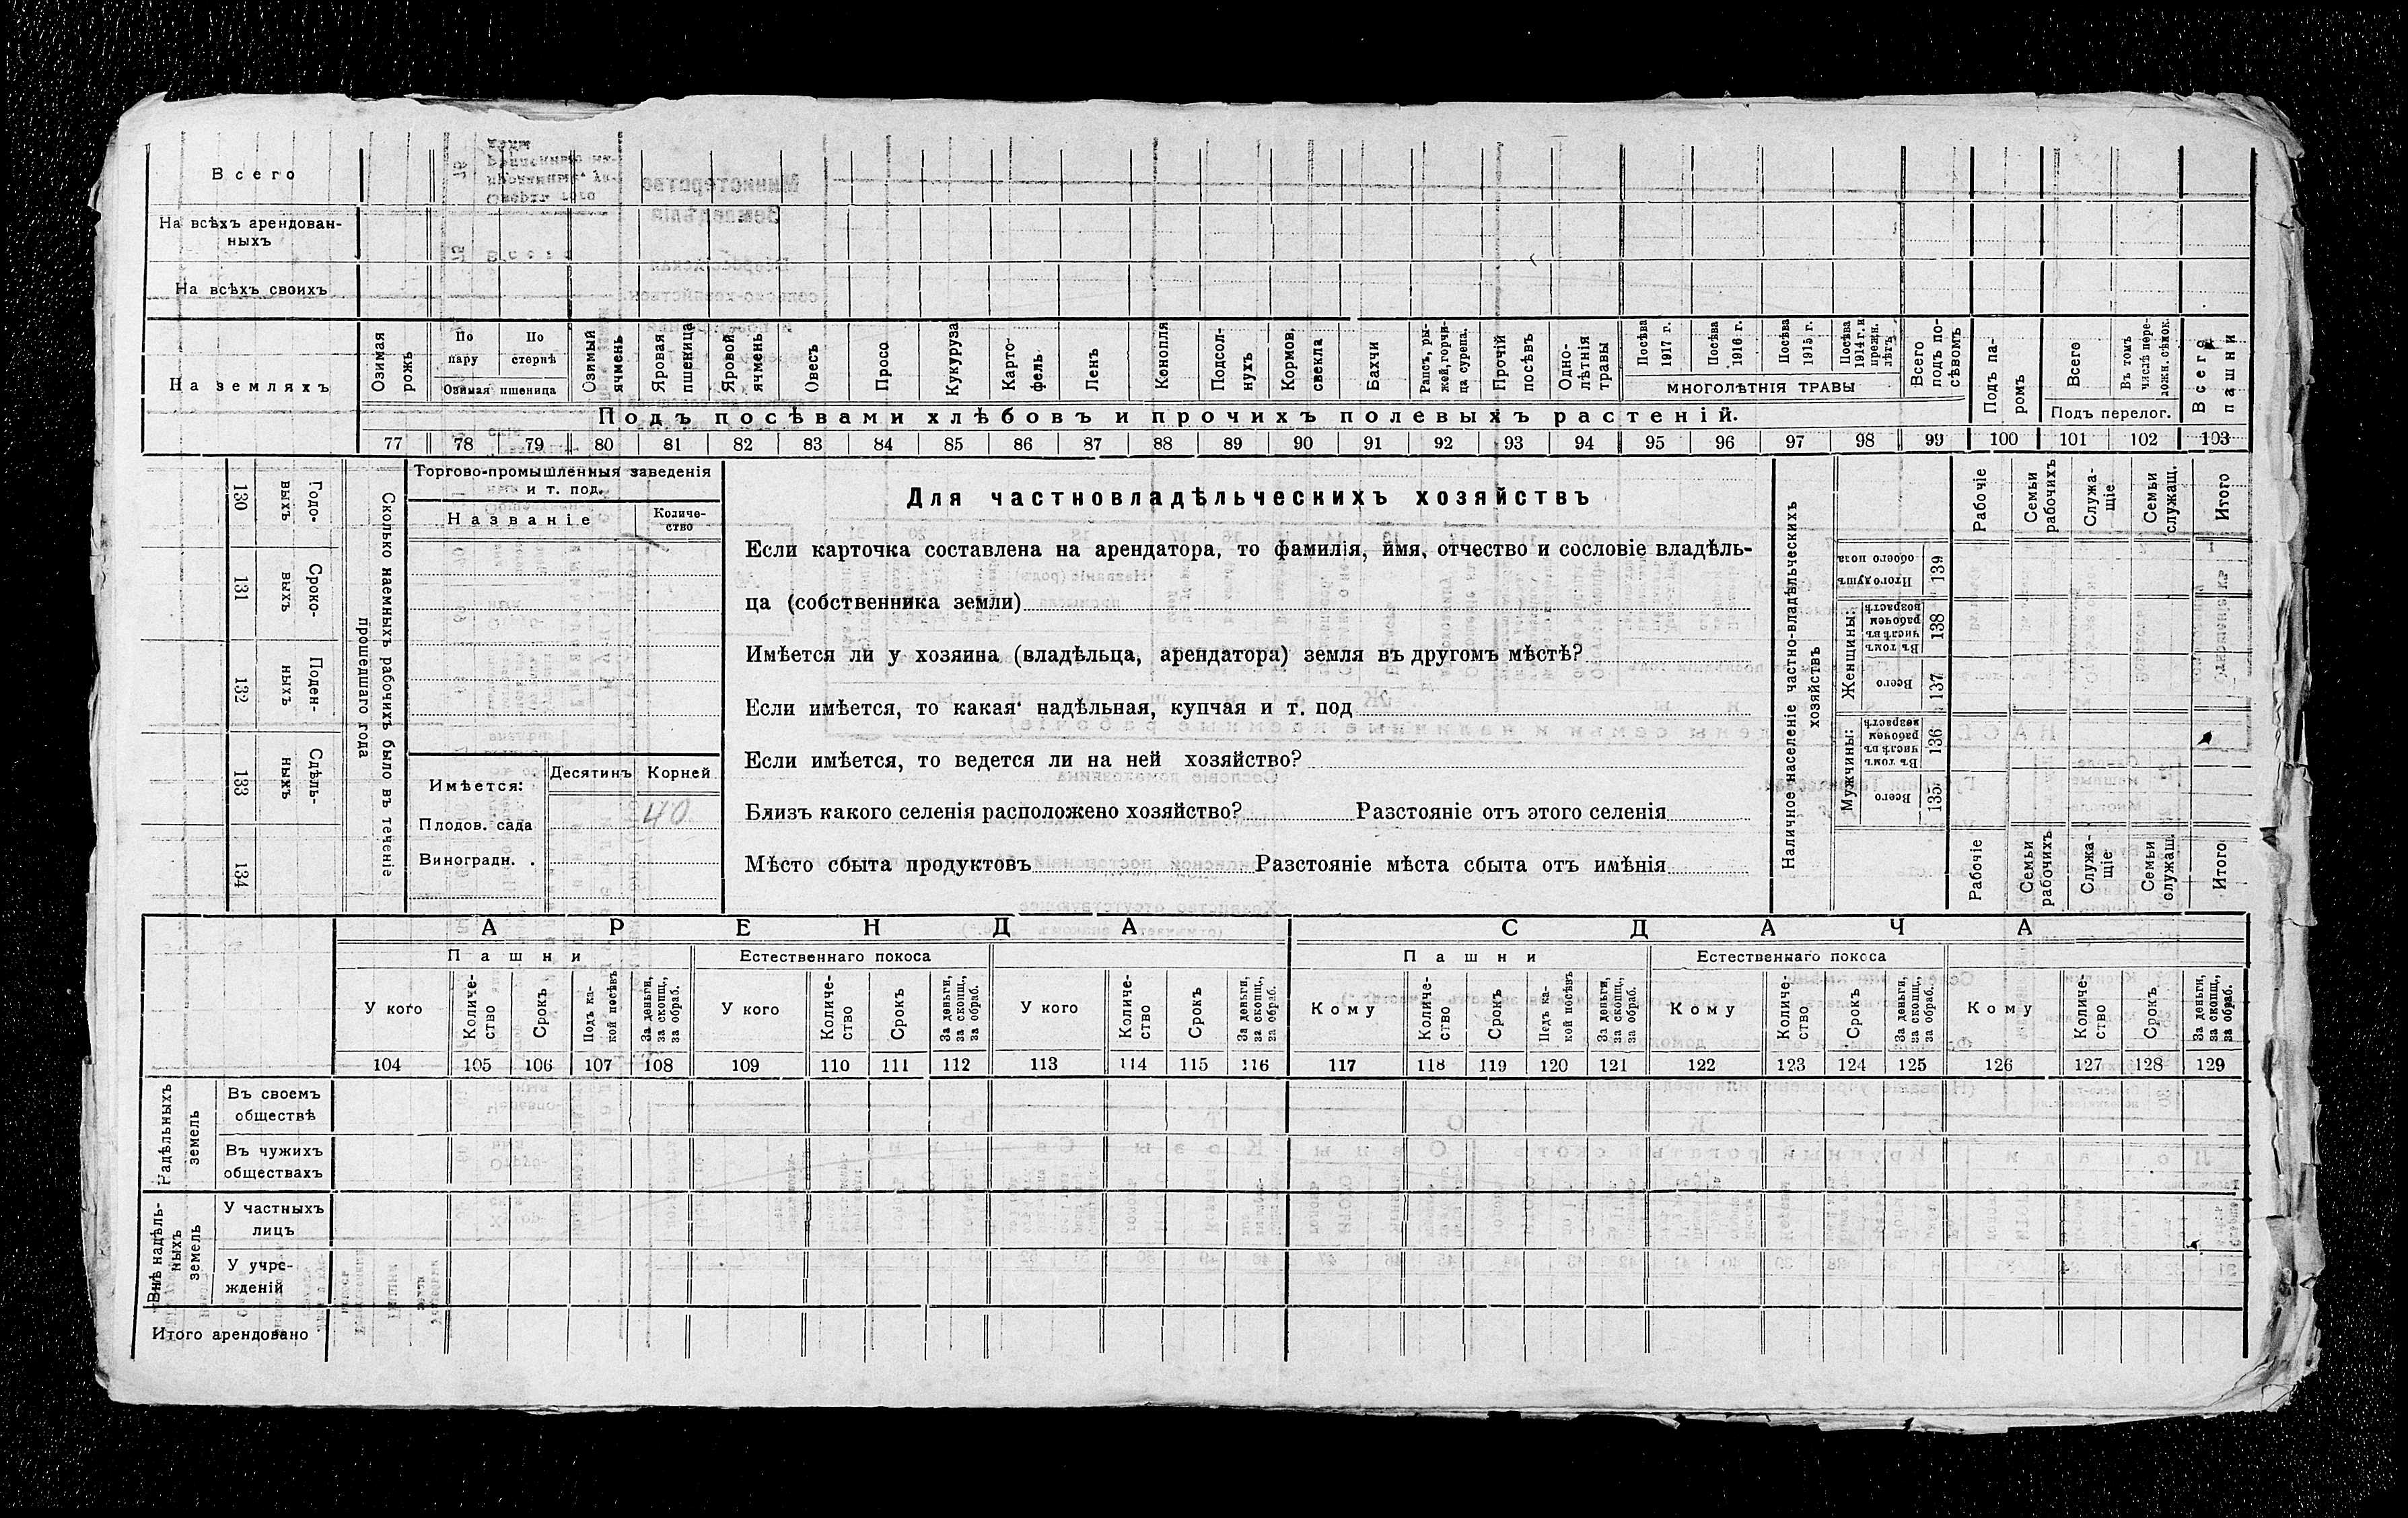 Всего
На всѣхъ арендован-
ныхъ
На всѣхъ своихъ
На земляхъ
Озимая рожь
По пару
По стернѣ
Озимая пшеница
Озимый ячмень
Яровая пшеница
Яровой ячмень
Овесъ
Просо
Кукуруза
Карто-
фель
Ленъ
Конопля
Подсол-
нухъ
Кормов. свекла
Бахчи
Рапсъ, ры-
жей, горчи-
ца сурепа.
Прочій посѣвъ
Одно-
лѣтнія травы
Посѣва 1917 г.
Посѣва 1916 г.
Посѣва 1915 г.
Посѣва 1914 г. и прежн. лѣтъ
МНОГОЛѢТНІЯ ТРАВЫ
Всего подъ по-
сѣвомъ
Подъ па-
ромъ
Всего
Въ томъ числѣ пере-
ложн. сѣнок.
Подъ перелог.
Всего пашни
Подъ посѣвами хлѣбовъ и прочихъ полевыхъ растеній.
77 78 79 80 81 82 83 84 85 86 87 88 89 90 91 92 93 94 95 96 97 98 99 100 101 102 103
130 Годо-
выхъ
131 Сроко-
выхъ
132 Поден-
ныхъ
133 Сдѣль-
ныхъ
134
Сколько наемныхъ рабочихъ было въ теченіе
прошедшаго года
Торгово-промышленныя заведенія
и т. под.
Названіе
Количе-
ство
Имѣется:
Десятинъ
Корней
Плодов. сада
40
Виноградн. .
Для частновладѣльческихъ хозяйствъ
Если карточка составлена на арендатора, то фамилія, имя, отчество и сословіе владѣль-
ца (собственника земли)
Имѣется ли у хозяина (владѣльца, арендатора) земля въ другомъ мѣстѣ?
Если имѣется, то какая надѣльная, купчая и т. под
Если имѣется, то ведется ли на ней хозяйство?
Близъ какого селенія расположено хозяйство? Разстояніе отъ этого селенія
Мѣсто сбыта продуктовъ Разстояніе мѣста сбыта отъ имѣнія
Наличное население частно-владѣльческихъ
хозяйствъ
Рабочіе
Семьи рабочихъ
Служа-
щіе
Семьи служащ.
Итого
Итого душъ обоего пола 139
Женщины:
Въ томъ числѣ въ рабочем возрастѣ 138
Всего 137
Мужчины:
Въ томъ числѣ въ рабочем возрастѣ 136
Всего 135
Рабочіе
Семьи рабочихъ
Служа-
щіе
Семьи служащ.
Итого
АРЕНДА
СДАЧА
Пашни
Естественнаго покоса
Пашни
Естественнаго покоса
У кого
Количе-
ство
Срокъ
Подъ ка-
кой посѣвъ
За деньги, за скопщ., за обраб.
У кого
Количе-
ство
Срокъ
За деньги, за скопщ., за обраб.
У кого
Количе-
ство
Срокъ
За деньги, за скопщ., за обраб.
Кому
Количе-
ство
Срокъ
Подъ ка-
кой посѣвъ
За деньги, за скопщ., за обраб.
Кому
Количе-
ство
Срокъ
За деньги, за скопщ., за обраб.
Кому
Количе-
ство
Срокъ
За деньги, за скопщ., за обраб.
104 105 106 107 108 109 110 111 112 113 114 115 116 117 118 119 120 121 122 123 124 125 126 127 128 129
Надѣльныхъ
земель
Въ своемъ
обществѣ
Въ чужихъ
обществахъ
Внѣ надѣль-
ныхъ
земель
У частныхъ
лицъ
У учре-
жденій
Итого арендовано